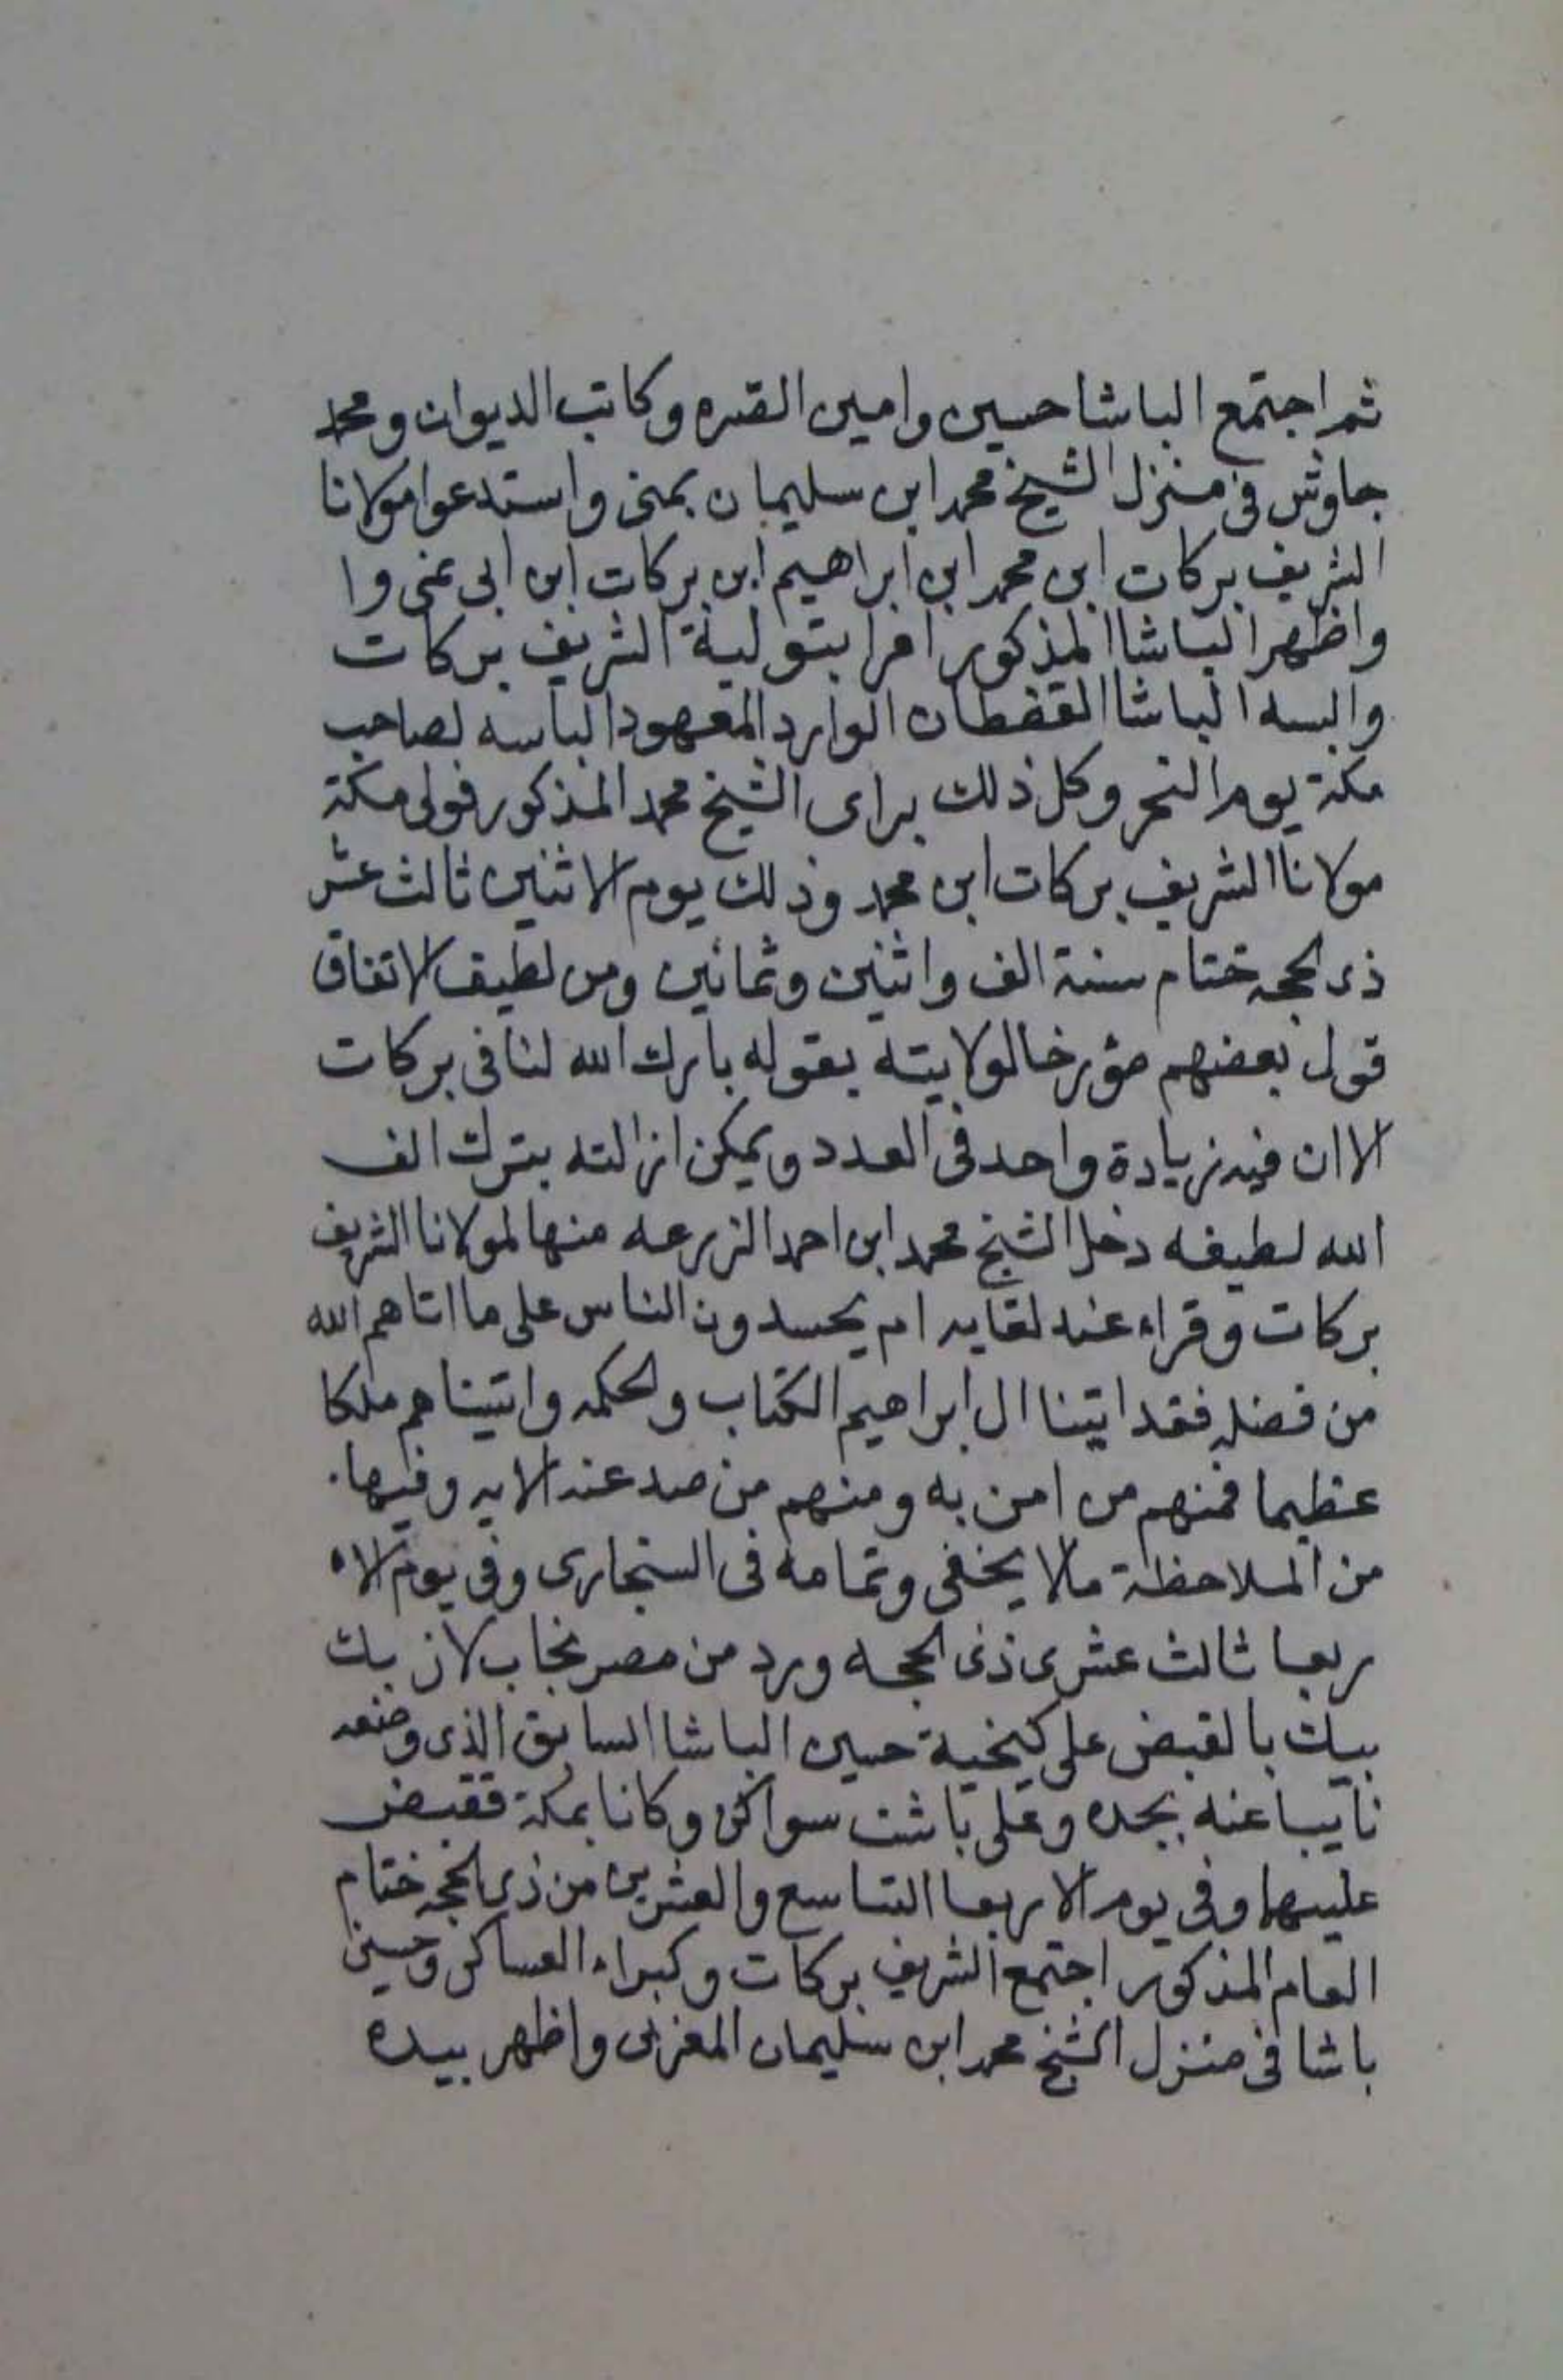 ثم اجتمع الباشا حسين وامين القره وكاتب الديوان ومحمد
جاوش فى منزل الشيخ محمد ابن سليمان بمنى واستدعوا مولانا
الشريف بركات ابن محمد ابن ابراهيم ابن بركات ابن ابى نمى وا
واظهر الباشا المذكور امرا بتولية الشريف بركات
والبسه الباشا القفطان الوارد المعهود الباسه لصاحب
مكة يوم النحر وكل ذلك براى الشيخ محمد المذكور فولى مكة
مولانا الشريف بركات ابن محمد وذلك يوم الاثنين ثالث عشر
ذى الحجه ختام سنة الف واثنين وثمانين ومن لطيف الاتفاق
قول بعضهم مؤرخا لولايته بقوله بارك الله لنا فى بركات
الا ان فيه زيادة واحد فى العدد ويمكن ازالته بترك الف
الله لطيفه دخل الشيخ محمد ابن احمد الزرعه منها لمولانا الشريف
بركات وقراء عند لقايه ام يحسدون الناس على ما اتاهم الله
من فضله فقد اتينا ال ابراهيم الكتاب والحكمه واتيناهم ملكا
عظيما فمنهم من امن به ومنهم من صد عنه الايه وفيها
من الملاحظة مالا يخفى وتمامه فى السنجارى وفى يوم الا
ربعا ثالث عشرى ذى الحجه ورد من مصر نجاب لازبك
بيك بالقبض على كيخية حسين الباشا السابق الذى وضعه
نايبا عنه بجده وعلى باشت سواكن وكانا بمكة فقبض
عليهما وفى يوم الاربعا التاسع والعشرين من ذى الحجه ختام
العام المذكور اجتمع الشريف بركات وكبراء العساكر وحسين
باشا فى منزل الشيخ محمد ابن سليمان المغربى واظهر بيده